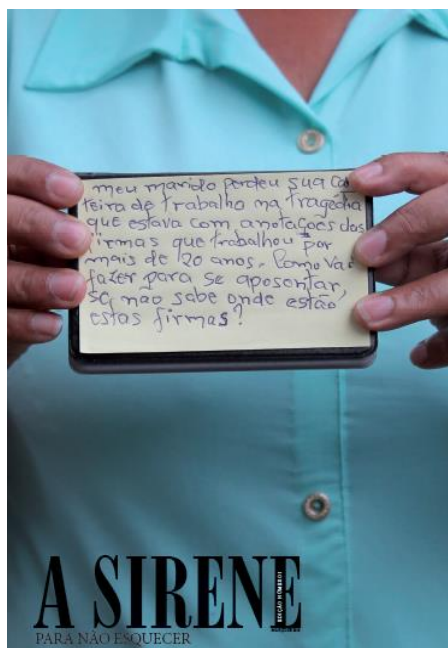 meu marido perdeu sua car
teira de trabalho na tragédia
que estava com anotações dos
firmas que trabalhou por
mais de 20 anos. Como vai
fazer para se aposentar,
se não sabe onde estão
estas firmas?
A SIRENE
EDIÇÃO NÚMERO 1
PARA NÃO ESQUECER